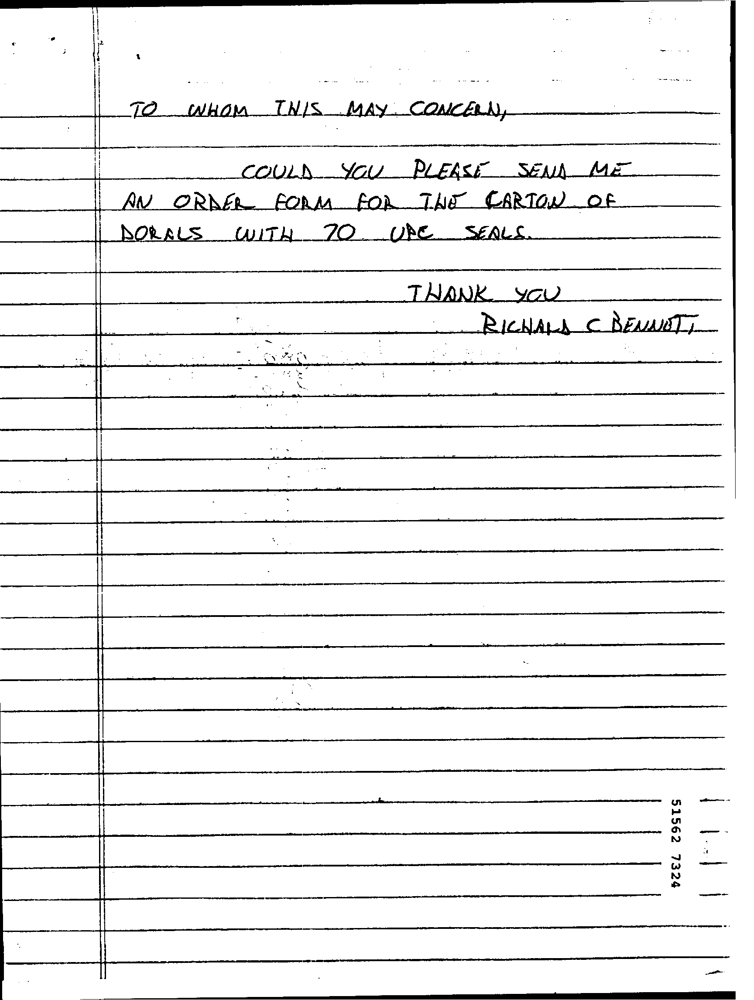 TO WHOM THIS MAY CONCERN,
COULD YOU PLEASE SEND ME
AN ORDER FORM FOR THE CARTON OF
DORALS WITH 70 UPC SEALS.
THANK YOU
RICHARD C BENNETT
51562 7324